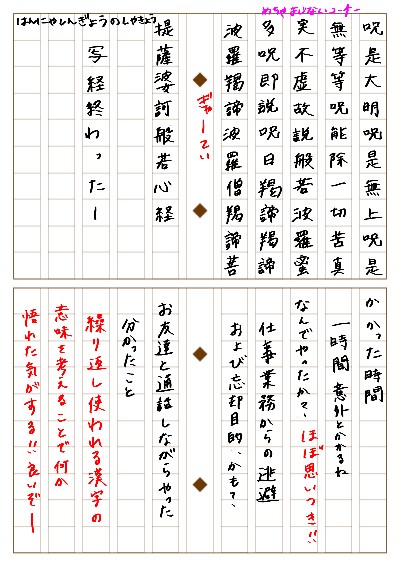 めちゃまじないコーナー
はんにゃしんぎょうのしゃきょう
呪是大明呪是無上呪是
無等等呪能除一切苦真
実不虚故説般若波羅蜜
多呪即説呪日羯諦羯諦
波羅羯諦波羅僧羯諦菩
ぎゃーてい
提薩婆訶般若心経
写経終わったー
かかった時間
一時間意外とかかるね
なんでやったか?、ほぼ思いつき!!
仕事業務からの逃避
および忘却目的、かも?、
お友達と通話しながらやった
分かったこと
繰り返し使われる漢字の
意味を考えることで何か
悟れた気がする!!良いぞー